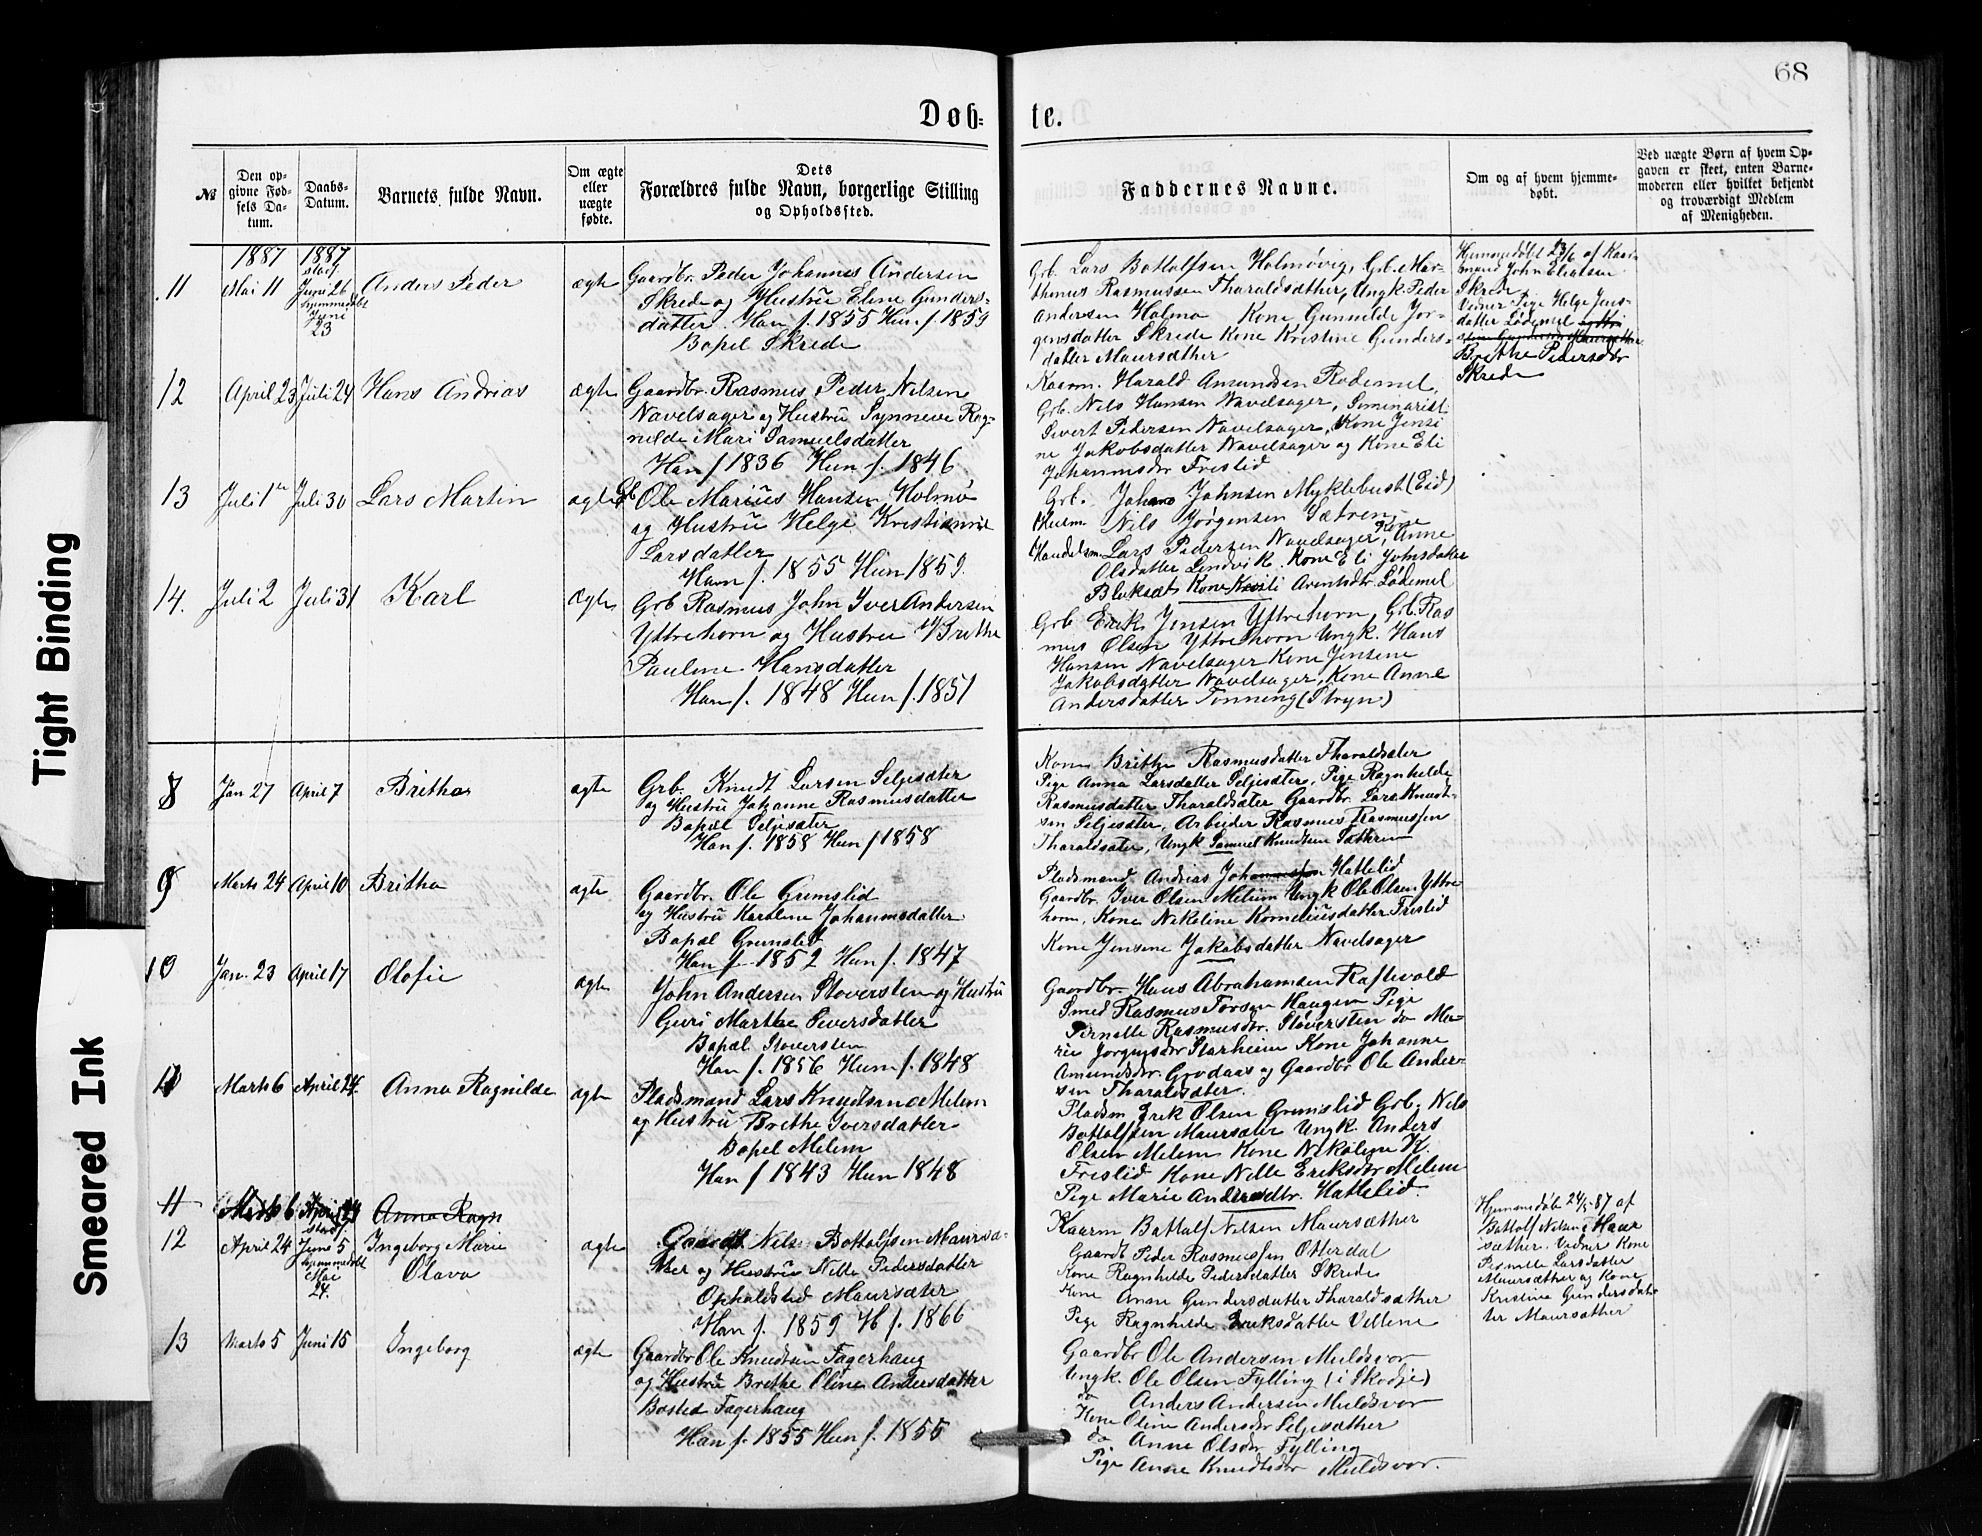 68
Døb-
te.
№
Den op-
givne Fød-
sels Da-
tum.
Daabs-
Datum.
Barnets fulde Navn.
Om ægte
eller
uægte
fødte.
Dets
Forældres fulde Navn, borgerlige Stilling
og Opholdssted.
Faddernes Navne.
Om og af hvem hjemme-
døbt.
Ved uægte Børn af hvem Op-
gaven er skeet, enten Barne-
moderen eller hvilket betjendt
og troværdigt Medlem
af Menigheden.
1887
1887
11
Mai 11
stadf.
Juni 26
hjemmedøbt
Juni
23
Anders Peder
ægte
Gaardbr. Peder Johannes Andersen
Skrede og Hustru Eline Gunders-
datter. Han f. 1855 Hun f. 1859
Bopel Skrede
Grb. Lars Bottolfsen Holmøvig, Grb. Mar-
thinus Rasmussen Tharaldsæther, Ungk. Peder
Andersen Holmø Kone Gunnilde Jør-
gensdatter Skrede Kone Kristine Gunders-
datter Maursæther
Hjemmedøbt 23/6 af Kaar-
mand John Eliassen
Skrede
Vidner Pige Helge Jens-
datter Lødemel
Brithe Pedersdtr
Skrede
12
April 23
Juli 24
Hans Andreas
ægte
Gaardbr. Rasmus Peder Nilsen
Navelsager og Hustru Synneve Rag-
nilde Mari Samuelsdatter
Han f 1836 Hun f. 1846
Kaarm. Harald Amundsen Rødemel,
Grb. Nils Hansen Navelsager, Seminarist
Sivert Pedersen Navelsager, Kone Jensi
ne Jakobsdatter Navelsager og Kone Eli
Johannesdtr Frislid
13
Juli 1
Juli 30
Lars Martin
ægte
Gb Ole Marius Hansen Holmø
og Hustru Helge Kristianne
Larsdatter
Han f. 1855 Hun 1859.
Grb. Johan Johnsen Myklebust (Eid)
Husm Nils Jørgensen Sætren,
Handelsm. Lars Pedersen Navelsager, Kone Anne
Olsdatter Lendvik. Kone Eli Johnsdatter
Bleksæt Kone Kristi Arentsdtr Lødemel
14.
Juli 2
Juli 31
Karl
Ægte
Grb Rasmus John Iver Andersen
Yttrehorn og Hustru Brithe
Pauline Hansdatter
Han f. 1848 Hun f. 1851
Grb Erik Jensen Yttrehorn, Grb. Ras
mus Olsen Yttrehorn Ungk. Hans
Hansen Navelsager Kone Jensine
Jakobsdatter Navelsager, Kone Anne
Andersdatter Tonning (Stryn)
8
Jan 27
April 7
Brithe
ægte
Grb. Knudt Larsen Seljesæter
og Hustru Johanne Rasmusdatter
Bopæl Seljesæter
Han f. 1858 Hun f 1858
Kone Brithe Rasmusdatter Tharaldsæter
Pige Anna Larsdatter Seljesæter, Pige Ragnhilde
Rasmusdatter Tharaldsæter Gaardbr. Lars Knudt-
sen Seljesæter, Arbeider Rasmus Rasmussen
Tharaldsæter, Ungk Samuel Knudtsen Sætren
9
Marts 24
April 10
Britha
ægte
Gaardbr. Ole Grimslid
og Hustru Karoline Johannesdatter
Bopæl Grimslid
Han f 1852 Hun f. 1847
Pladsmand Andreas Johannessen Hattelid
Gaardbr. Iver Olsen Melum Ungk Ole Olsen Yttre
horn, Kone Nikoline Korneliusdatter Frislid
Kone Jensine Jakobsdatter Navelsager
10
Jan. 23
April 17
Olofie
ægte
John Andersen Støversten og Hustru
Guri Marthe Siversdatter
Bopæl Støversten
Han f. 1856 Hun f. 1848
Gaardbr. Hans Abrahamsen Raftevold
Smed Rasmus Torsen Haugen Pige
Pernelle Rasmusdtr. Støversten do Ma-
rie Jørginsdtr Starheim Kone Johanne
Amundsdtr. Grodaas og Gaardbr Ole Ander-
sen Tharaldsæter.
11
Marts 6
April 24
Anna Ragnilde
ægte
Pladsmand Lars Knudtsen Melem
og Hustru Brithe Iversdatter
Bopel Melem
Han f 1843 Hun 1848
Pladsm Erik Olsen Grimslid Grb. Nils
Bottolfsen Maursæter Ungk. Anders
Olsen Melem Kone Nikoline K.
Frislid Kone Nille Eriksdtr Melem
Pige Marie Andersdtr. Hattelid.
11
Marts 6
April 24
Anna Ragn
12
April 24
stadf.
Juni 5
hjemmedøbt
Mai
24.
Ingeborg Marie
Olava
ægte
Gaardb Nils Bottolfsen Maursæ-
ther og Hustru Nille Pedersdatter
Opholdsted Maursæter
Han f. 1859 H f. 1866
Kaarm Bottolf Nilsen Maursæther
Gaardb Peder Rasmussen Otterdal
Kone Ragnhilde Pedersdatter Skrede
Kone Anne Gundersdatter Tharaldsæther
Pige Ragnhilde Eriksdatter Vellene
Hjemmedøbt 24/5-87 af
Bottolf Nilsen Maur
sæther. Vidner Kone
Pernille Larsdatter
Maursæther og Kone
Kristine Gundersdat-
ter Maursæther
13
Marts 5
Juni 15
Ingeborg
ægte
Gaardbr Ole Knudtsen Fagerhaug
og Hustru Brithe Oline Andersdatter
Bosted Fagerhaug
Han f. 1855 Hun f. 1855
Gaardbr Ole Andersen Muldsvor
Ungk. Ole Olsen Fylling (i Skodje)
do Anders Andersen Muldsvor
Kone Oline Andersdtr Seljesæther
do Anne Olsdtr Fylling
Pige Anne Knudtsdtr Muldsvor.
Tight Binding
Smeared Ink